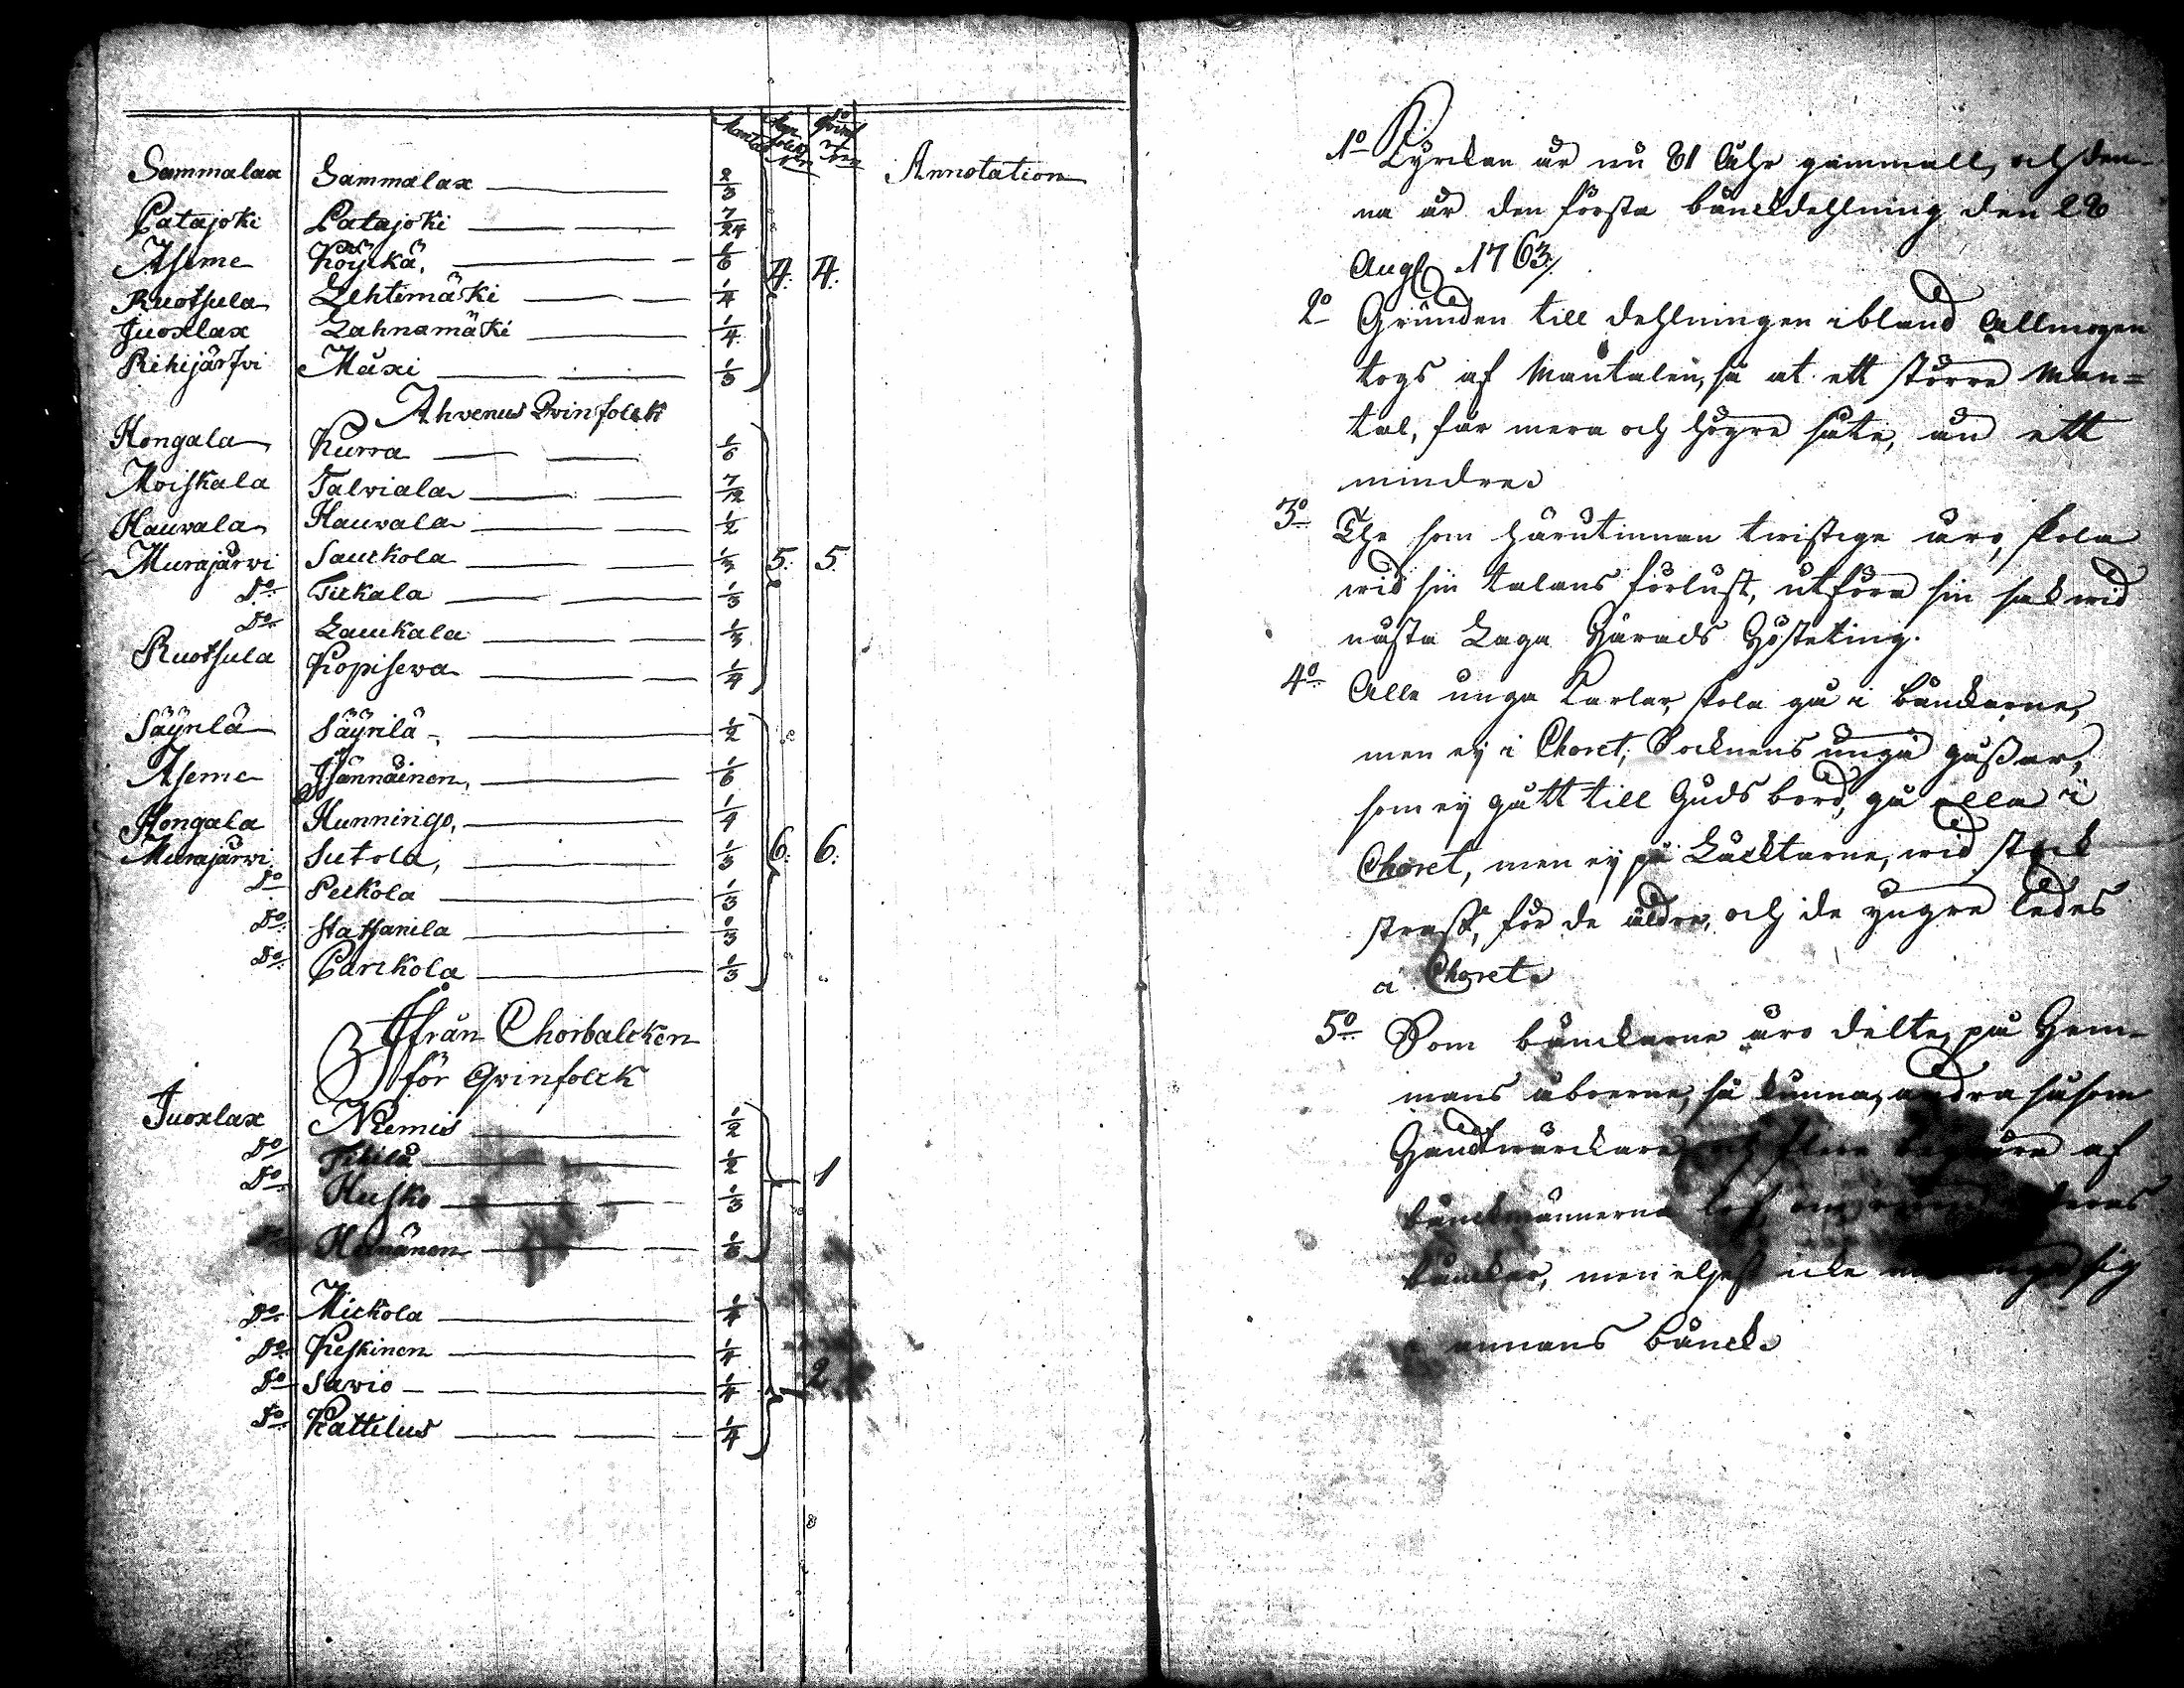 Mantal Man folck N:o Qvinf N:o
Annotation
Sammalax Sammalax 2/3
Patajoki Patajoki 7/24
Aseme Köyckä 1/6
4. 4.
Ruotsula Lehtimäki 1/4
Juoxlax Lahnamäki 1/4
Rihijärfvi Maxi 1/3
Ahvenus Qvinfolck
Hongala Kurra 1/6
Moiskala Talviala 7/12
Hauvala Hauvala 1/2
Murajärvi Sauckola 1/3 5. 5.
D:o Tickala 1/3
D:o Lauckala 1/3
Ruotsula Kopisewa 1/4
Säyrilä Säyrilä 1/2
Aseme Jännäinen, 1/6
Hongala Hunningo, 1/4
Murajärvi Sutola, 1/3 6. 6.
D:o Peckola 1/3
D:o Staffanila 1/3
D:o Parckola 1/3
Ifrån Chorbalcken
för Qvinfolck
Juoxlax Niemis 1/2
D:o 1/2
1
D:o Husko 1/3
1/3
D:o Mickola 1/4
D:o Keskinen 1/4
D:o Savio 1/4 2
D:o Kattilus 1/4
1:o Kyrckan är nu 81 Åhr gammall, och den-
na är den första bänckdehlning den 28
Aug. 1763/
2:o Grunden till dehlningen ibland Allmogen
togs af Mantalen, så at ett större Man=
tal, får mera och högre säte, än ett
mindre.
3:o The som härutinnan twistige äro, skola
wid sin talans förlust, utföra sin sak wid
nästa Laga Härads Hösteting.
4:o Alla unga Karlar, skola gå i bänckarne,
men ey i Choret; Socknens unga gåssar,
som ey gått till Guds bord, gå alla i
Choret, men ey på Läcktarne, wid stock
straff, för de äldre, och de yngre ledes
i Choret.
5:o Som bänckarne äro delte på Hem-
mans åboerne, så kunna andra såsom
Handtwärckare och flere af
bänckmännerne lof, deras
bänckar, men eljest icke sig
i annans bänck.